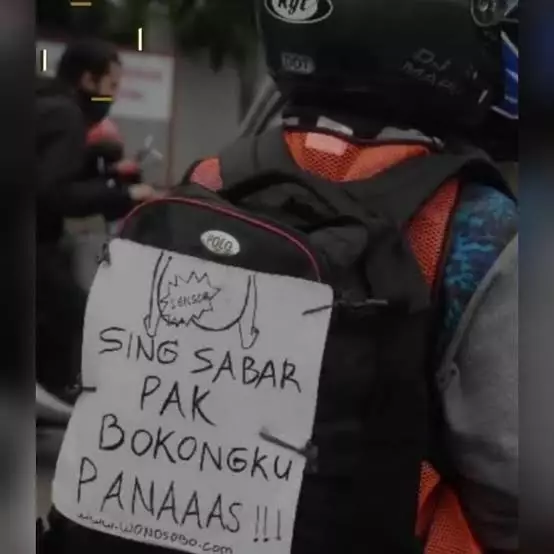 Kyt
DOT
POLO
SENSOR
SING SABAR
PAK
BOKONGKU
PANAAAS !!!
www.WONOSOBO.com